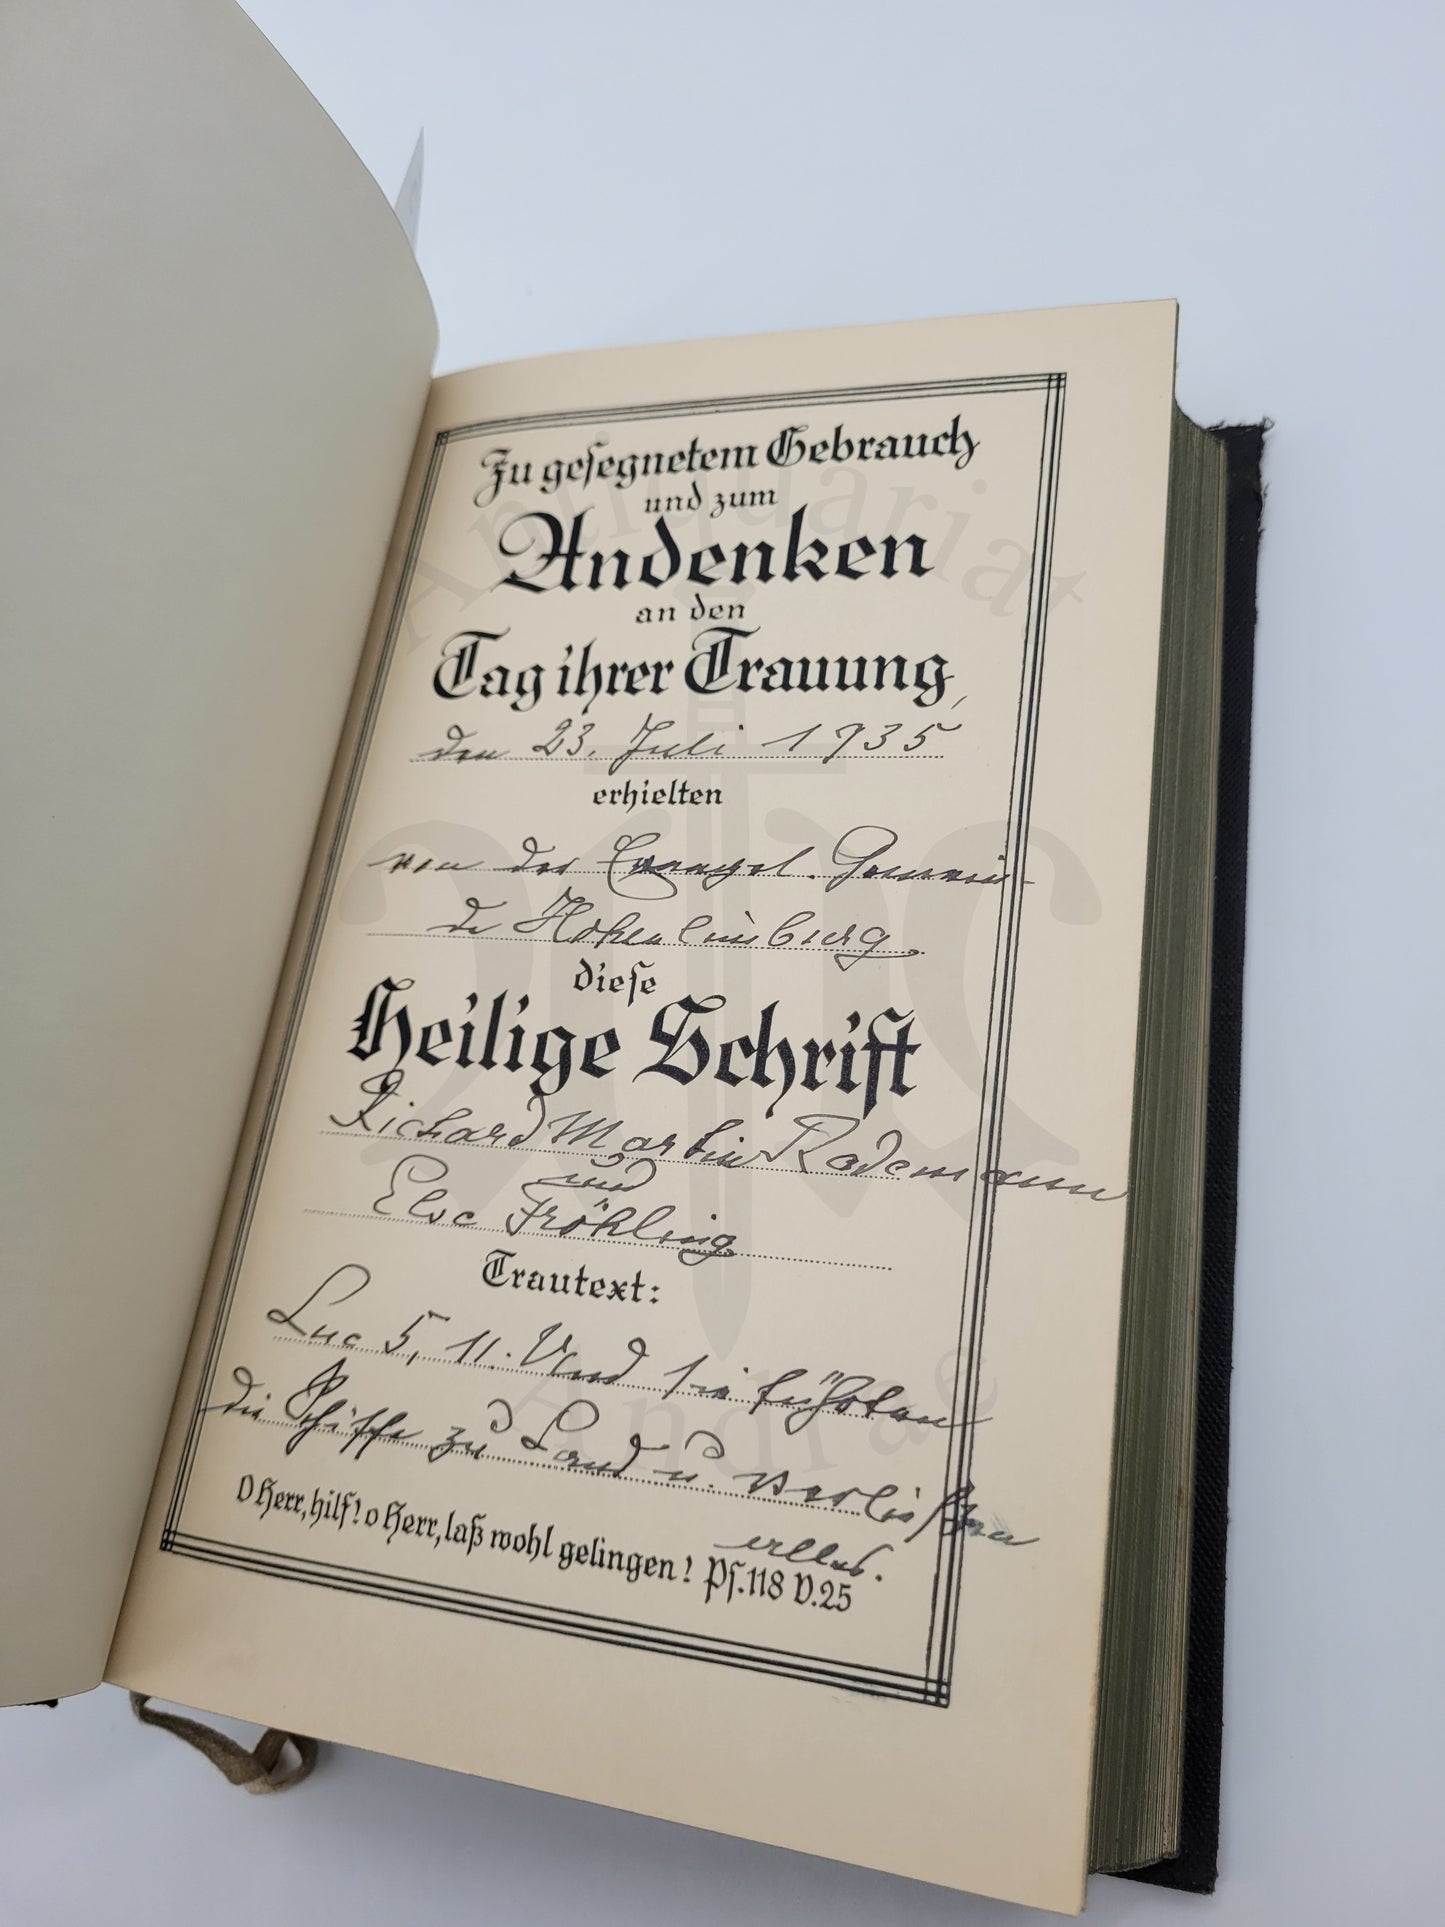 Zu gesegnetem Gebrauch
und zum
Andenken
an den
Tag ihrer Trauung,
den 23. Juli 1935
erhielten
von der Evangel. Gemein-
de Hohenlimburg
diese
Heilige Schrift
Richard Martin Rademann
und
Else Fröhling
Trautext:
Luc 5, 11. Und sie führten
die Schiffe zu Land u. verließen
alles.
O Herr, hilf! o Herr, laß wohl gelingen! Ps. 118 V. 25
Antiquariat
Andrae